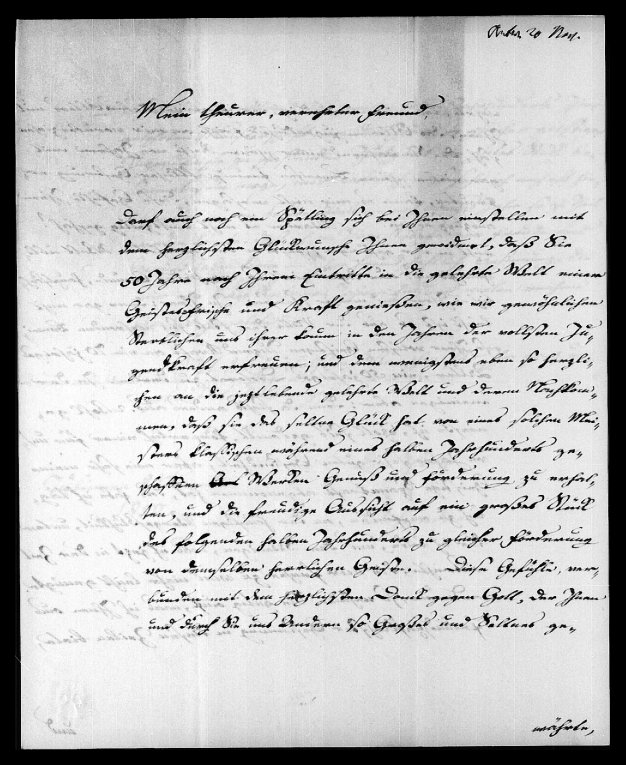 20 Nov.
Mein theurer, verehrter Freund,
Darf auch noch ein Spätling sich bei Ihnen einstellen mit
dem herzlichsten Glückwunsch Ihnen gewidmet, daß Sie
50 Jahre nach Ihrem Eintritte in die gelehrte Welt einer
Geistesfrische und Kraft genießen, wie wir gewöhnlichen
Sterblichen uns ihrer kaum in den Jahren der vollsten Ju-
gendkraft erfreuen; und dem wenigstens eben so herzli-
chen an die jetzt lebende gelehrte Welt und deren Nachkom-
men, daß sie das seltne Glück hat von eines solchen Mei-
sters klassischen während eines halben Jahrhunderts ge-
schaffnen Werken Genuß und Förderung zu erhal-
ten, und die freudige Aussicht auf ein großes Stück
des folgenden halben Jahrhunderts zu gleicher Förderung
von demselben herrlichen Geiste. Diese Gefühle, ver-
bunden mit dem herzlichsten Dank gegen Gott, der Ihnen
und durch Sie uns Andern so Großes und Seltnes ge-
währte,